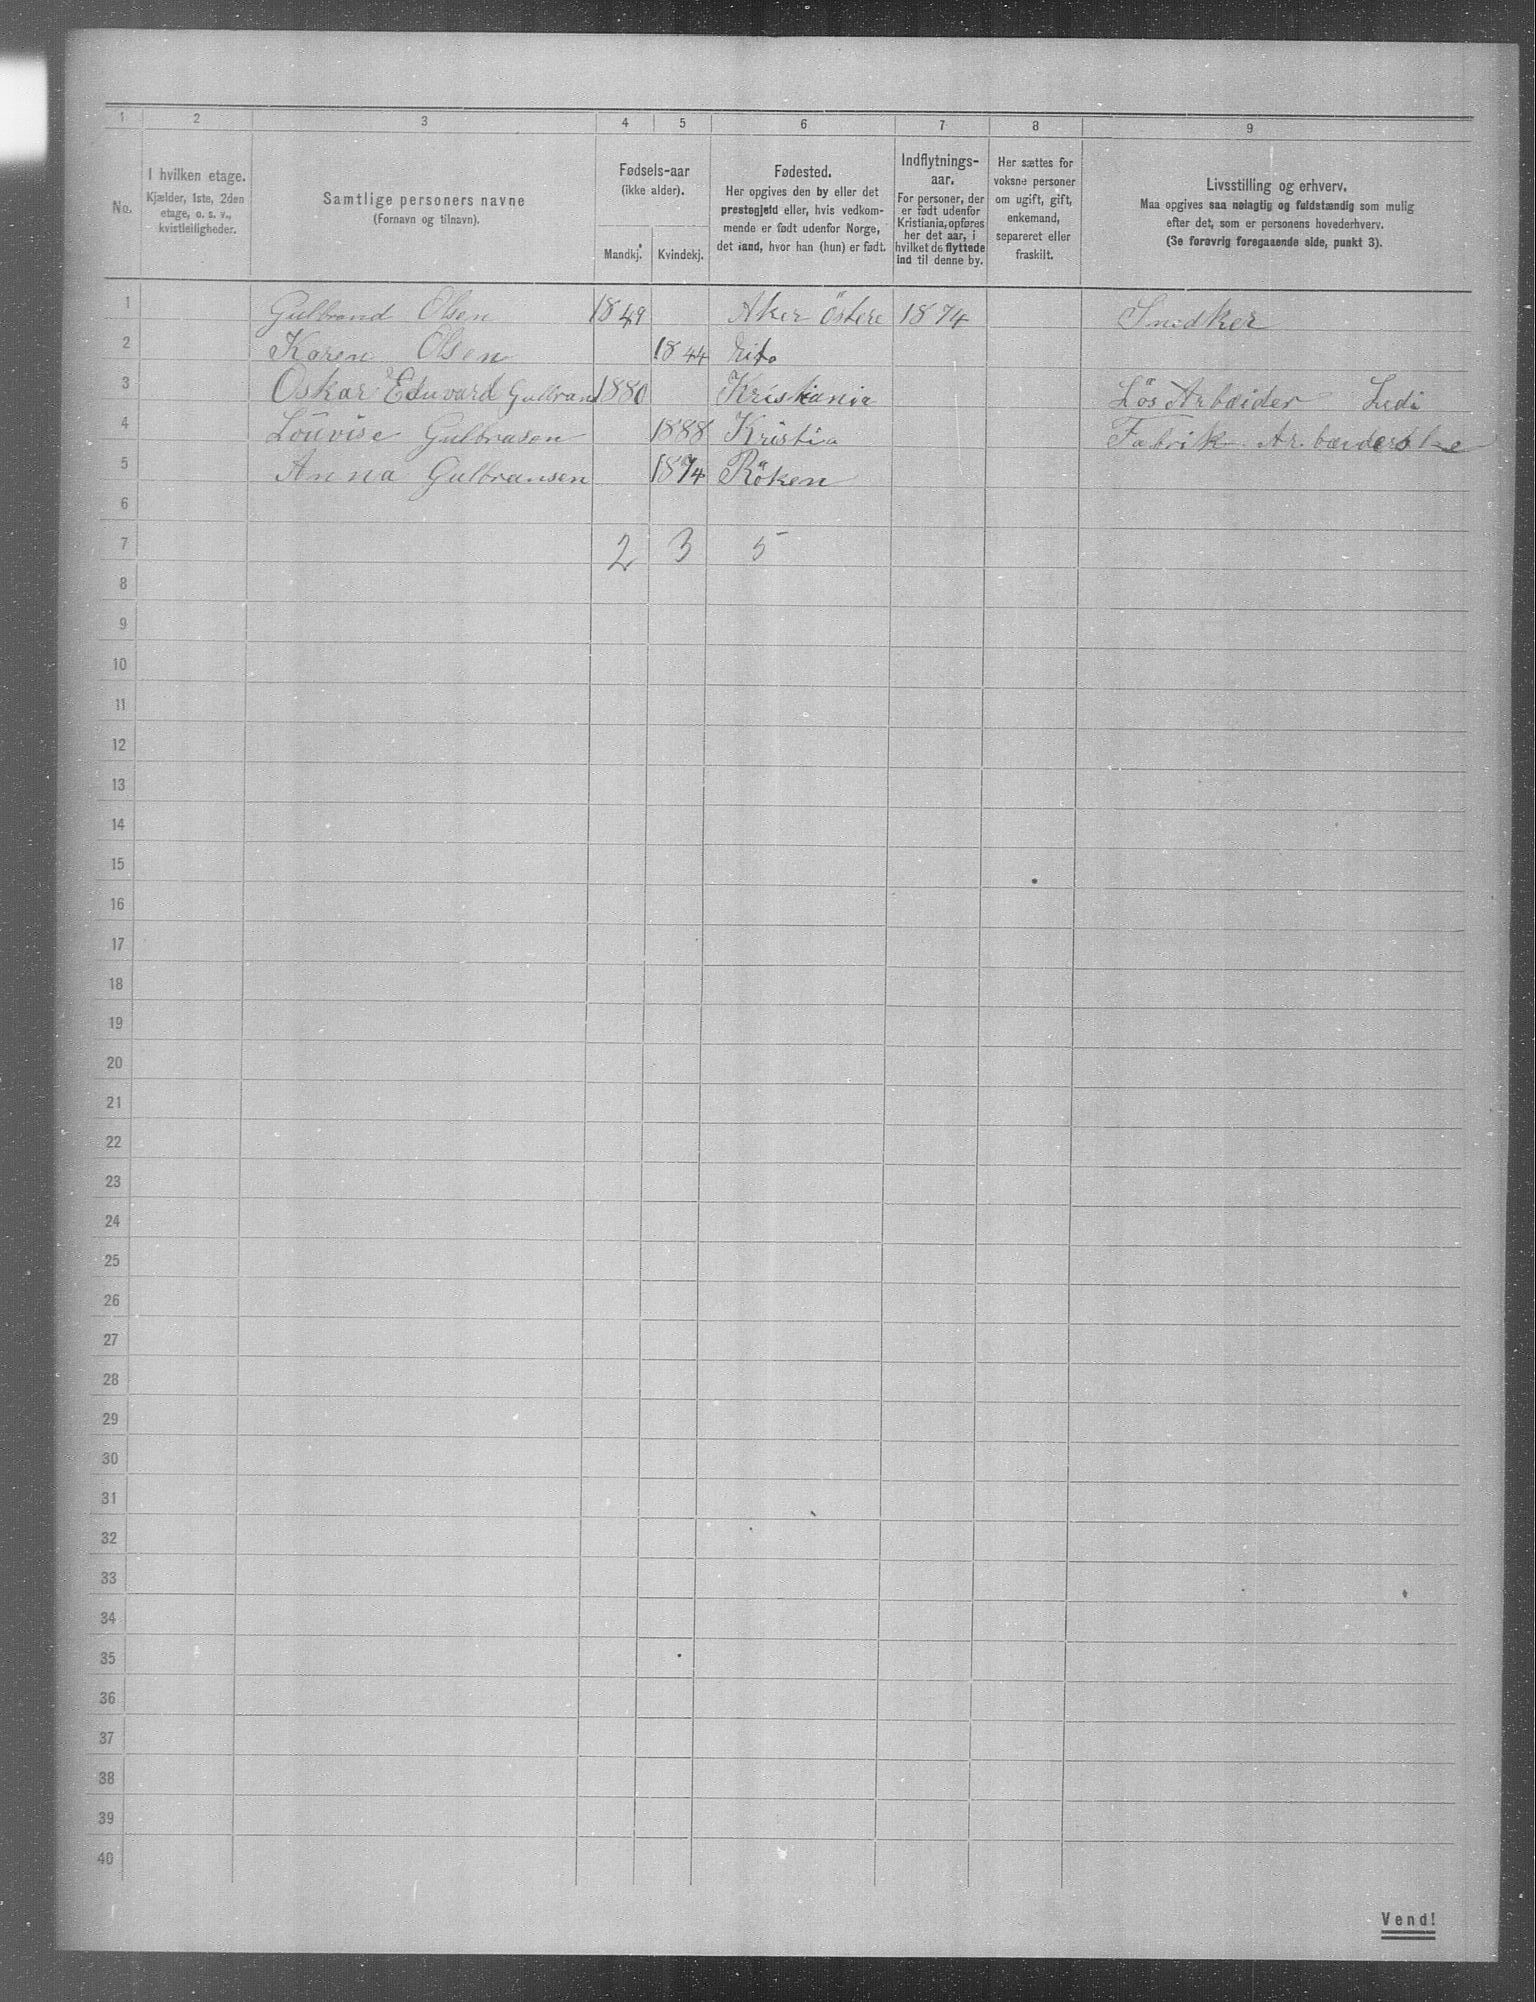 1 2 3 4 5 6 7 8 9
No.
I hvilken etage.
Kjælder, 1ste, 2den
etage, o. s. v.,
kvistleiligheder.
Samtlige personers navne
(Fornavn og tilnavn).
Fødsels-aar
(ikke alder).
Mandkj. Kvindekj.
Fødested.
Her opgives den by eller det
prestegjeld eller, hvis vedkom-
mende er født udenfor Norge,
det land, hvor han (hun) er født.
Indflytnings-
aar.
For personer, der
er født udenfor
Kristiania, opføres
her det aar, i
hvilket de flyttede
ind til denne by.
Her sættes for
voksne personer
om ugift, gift,
enkemand,
separeret eller
fraskilt.
Livsstilling og erhverv.
Maa opgives saa nøiagtig og fuldstændig som mulig
efter det, som er personens hovederhverv.
(Se forøvrig foregaaende side, punkt 3).
1 Gulbrand Olsen 1849 Aker Östere 1874 Snedker
2 Karen Olsen 1844 Dito
3 Oskar Eduvard Gulbran 1880 Kristiania Lös Arbeider Ledi
4 Louvise Gulbrasen 1888 Kristia Fabrik Ar.bæiderske
5 Anna Gulbransen 1874 Röken
6
7 2 3 5
8
9
10
11
12
13
14
15
16
17
18
19
20
21
22
23
24
25
26
27
28
29
30
31
32
33
34
35
36
37
38
39
40
Vend!